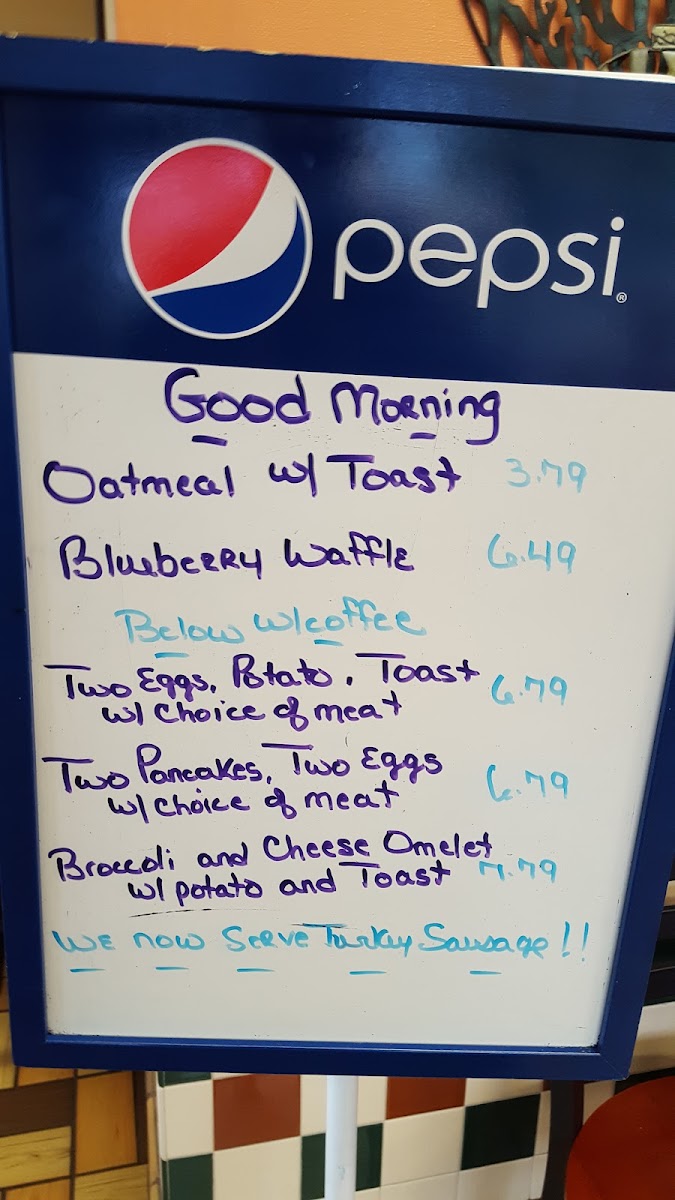 pepsi®
Good Morning
Oatmeal w/ Toast 3.79
Blueberry Waffle 6.49
Below w/coffee
Two Eggs, Potato, Toast 6.79
w/ choice of meat
Two Pancakes, Two Eggs 6.79
w/ choice of meat
Broccoli and Cheese Omelet
w/ potato and Toast 7.79
We now Serve Turkey Sausage!!